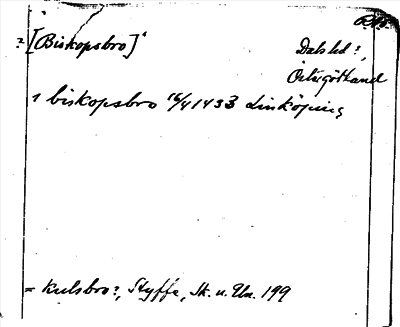 ? [Biskopsbro]
Dals hd?,
Östergötland
1 biskopsbro 16/4 1433 Linköping
= Kulsbro?, Styffe, Sk. u. Un. 199